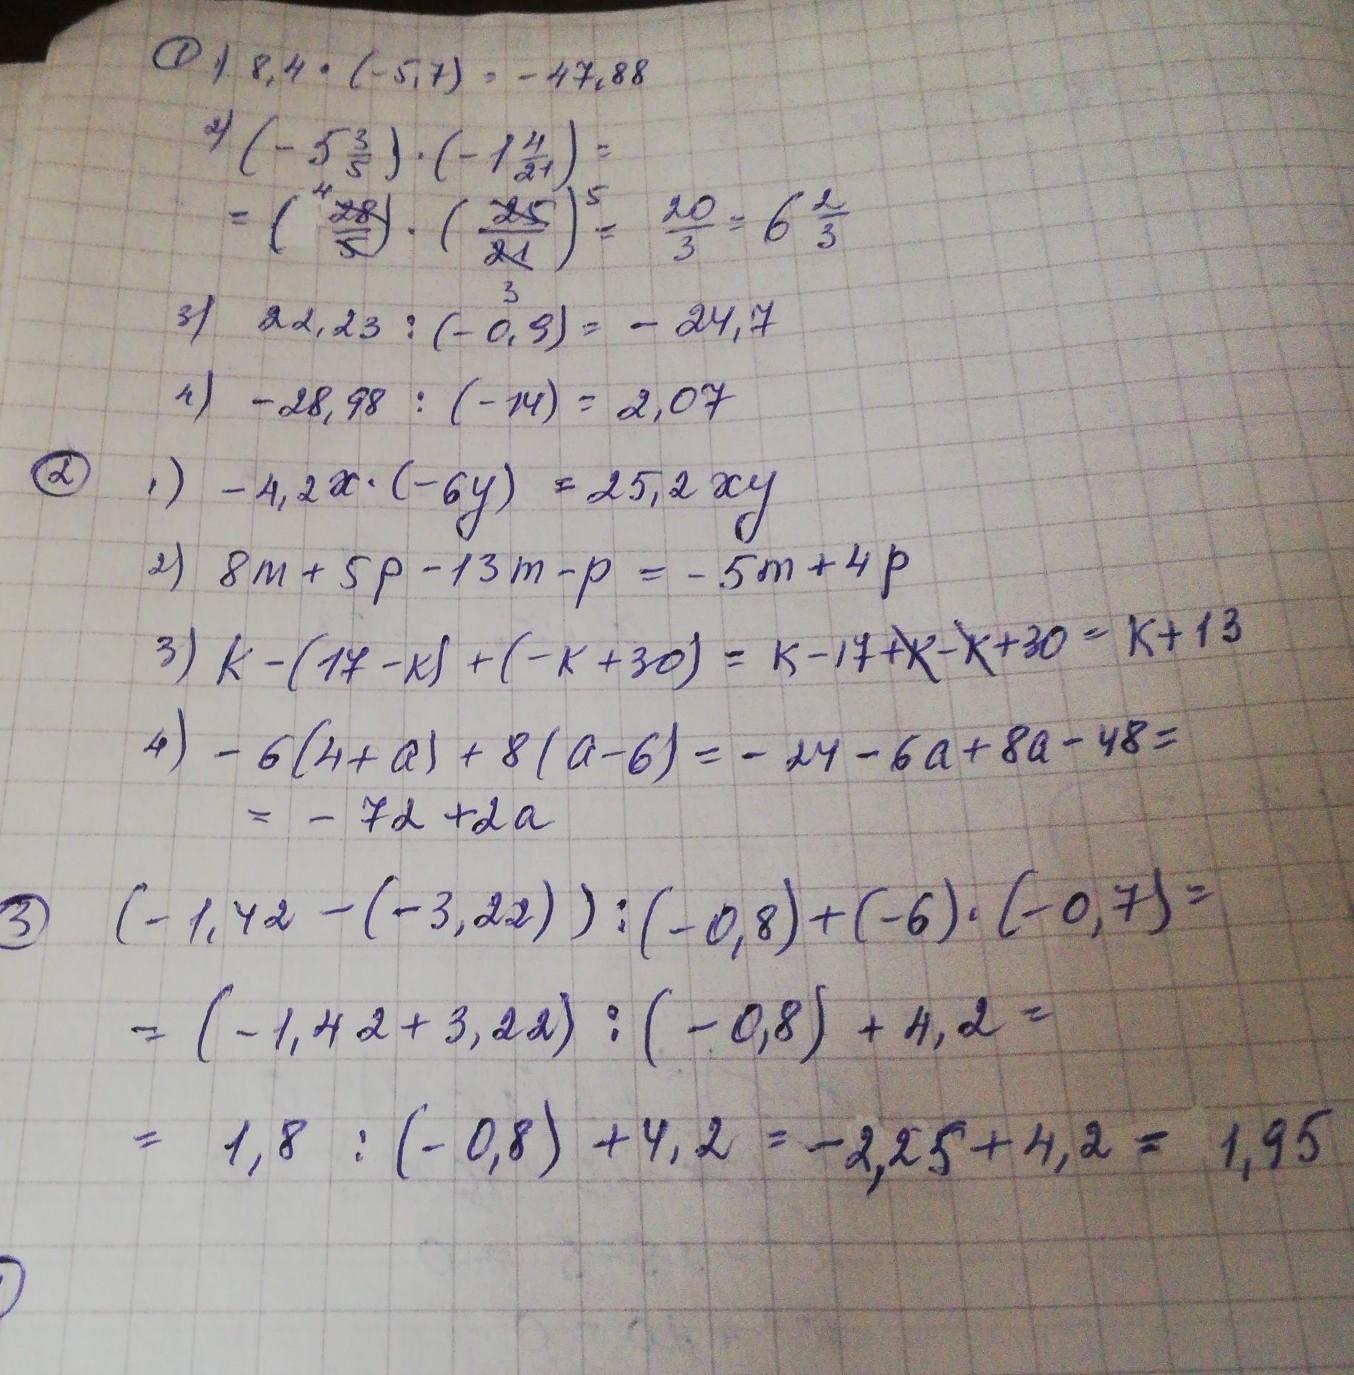 ① 1) 8,4 · (-5,7) = -47,88
2) (-5 3/5) · (-1 4/21) =
= (28/5) · (25/21) = 20/3 = 6 2/3
4 5
3
3) 22,23 : (-0,9) = -24,7
4) -28,98 : (-14) = 2,07
② 1) -4,2x · (-6y) = 25,2xy
2) 8m + 5p - 13m - p = -5m + 4p
3) k - (17 - k) + (-k + 30) = k - 17 + k - k + 30 = k + 13
4) -6(4 + a) + 8(a - 6) = -24 - 6a + 8a - 48 =
= -72 + 2a
③ (-1,42 - (-3,22)) : (-0,8) + (-6) · (-0,7) =
= (-1,42 + 3,22) : (-0,8) + 4,2 =
= 1,8 : (-0,8) + 4,2 = -2,25 + 4,2 = 1,95